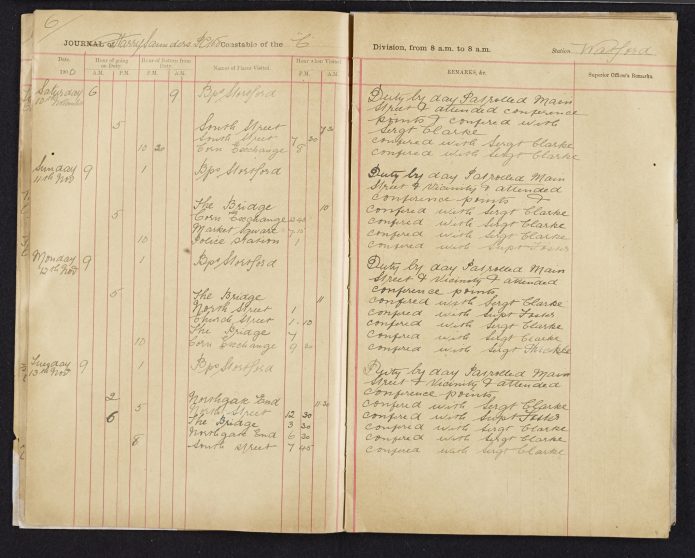 6
JOURNAL of Harry Saunders Constable of the "C" Division, from 8 a.m. to 8 a.m. Station Watford
Date Hour of going on Duty Hour of Return from Duty Names of Places Visited Hour when Visited REMARKS, &c. Superior Officer's Remarks.
190 0 A.M. P.M. A.M. P.M. A.M. P.M.
Saturday 6 9 Bps Stortford Duty by day Patrolled Main
10th November Street & attended conference
points & confered with
5 South Street Sergt Clarke
South Street 7 30 confered with Sergt Clarke
10 20 Corn Exchange 8 confered with Sergt Clarke
Sunday 9 1 Bps Stortford Duty by day Patrolled Main
11th Nov Street & Vicinity & attended
conference points &
The Bridge 10 confered with Sergt Clarke
5 Corn Exchange confered with Sergt Clarke
Market Square 7 15 confered with Sergt Clarke
10 Police Station 1 confered with Supt Foster
Monday 9 1 Bps Stortford Duty by day Patrolled Main
12th Nov Street & Vicinity & attended
conference points
5 The Bridge 11 confered with Sergt Clarke
North Street 1 confered with Supt Foster
Church Street 1 10 confered with Sergt Clarke
The Bridge 7 confered with Sergt Clarke
10 Corn Exchange 9 confered with Sergt
Tuesday 9 1 Bps Stortford Duty by day Patrolled Main
13th Nov Street & Vicinity & attended
conference points
2 Northgate End 11 30 confered with Sergt Clarke
5 North Street 12 30 confered with Supt Foster
6 The Bridge 3 30 confered with Sergt Clarke
Northgate End 6 30 confered with Sergt Clarke
8 South Street 7 45 confered with Sergt Clarke